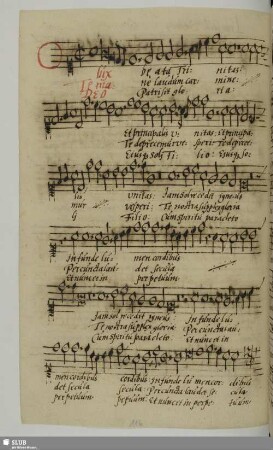 lux be ata Tri nitas:
Te ma ne laudum car mine:
Deo Patri sit glo ria
Et principalis v: nitas: et principa:
Te deprecemur ve spere: te deprece
Eiusq soli Fi lio: Eiusq so:
lis vnitas: Iam sol recedit igneus
mur vesperi: Te nostra supplex gloria
li Filio: Cum spiritu paracleto
Infunde lu: men cordibus
Per cuncta lau: det secula
Et nunc et in perpetuum
Iam sol recedit igneus Infunde lu:
Te nostra supplex gloria: Per cuncta lau:
Cum spiritu paracleto Et nunc et in
men cordibus cordibus: Infunde lu: men cor: dibus
det secula secula: Per cuncta laudet se: cula:
perpetuum: petuum: Et nunc et in perpe: tuum:
SLUB